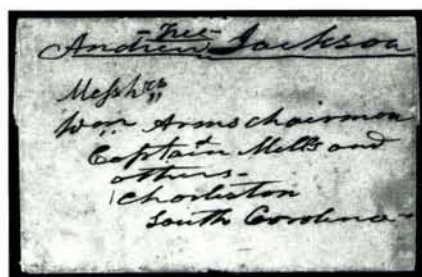 Free
Andrew Jackson
Messrs
Wm Arms chairman
Captain Mills and
others
Charleston
South Carolina